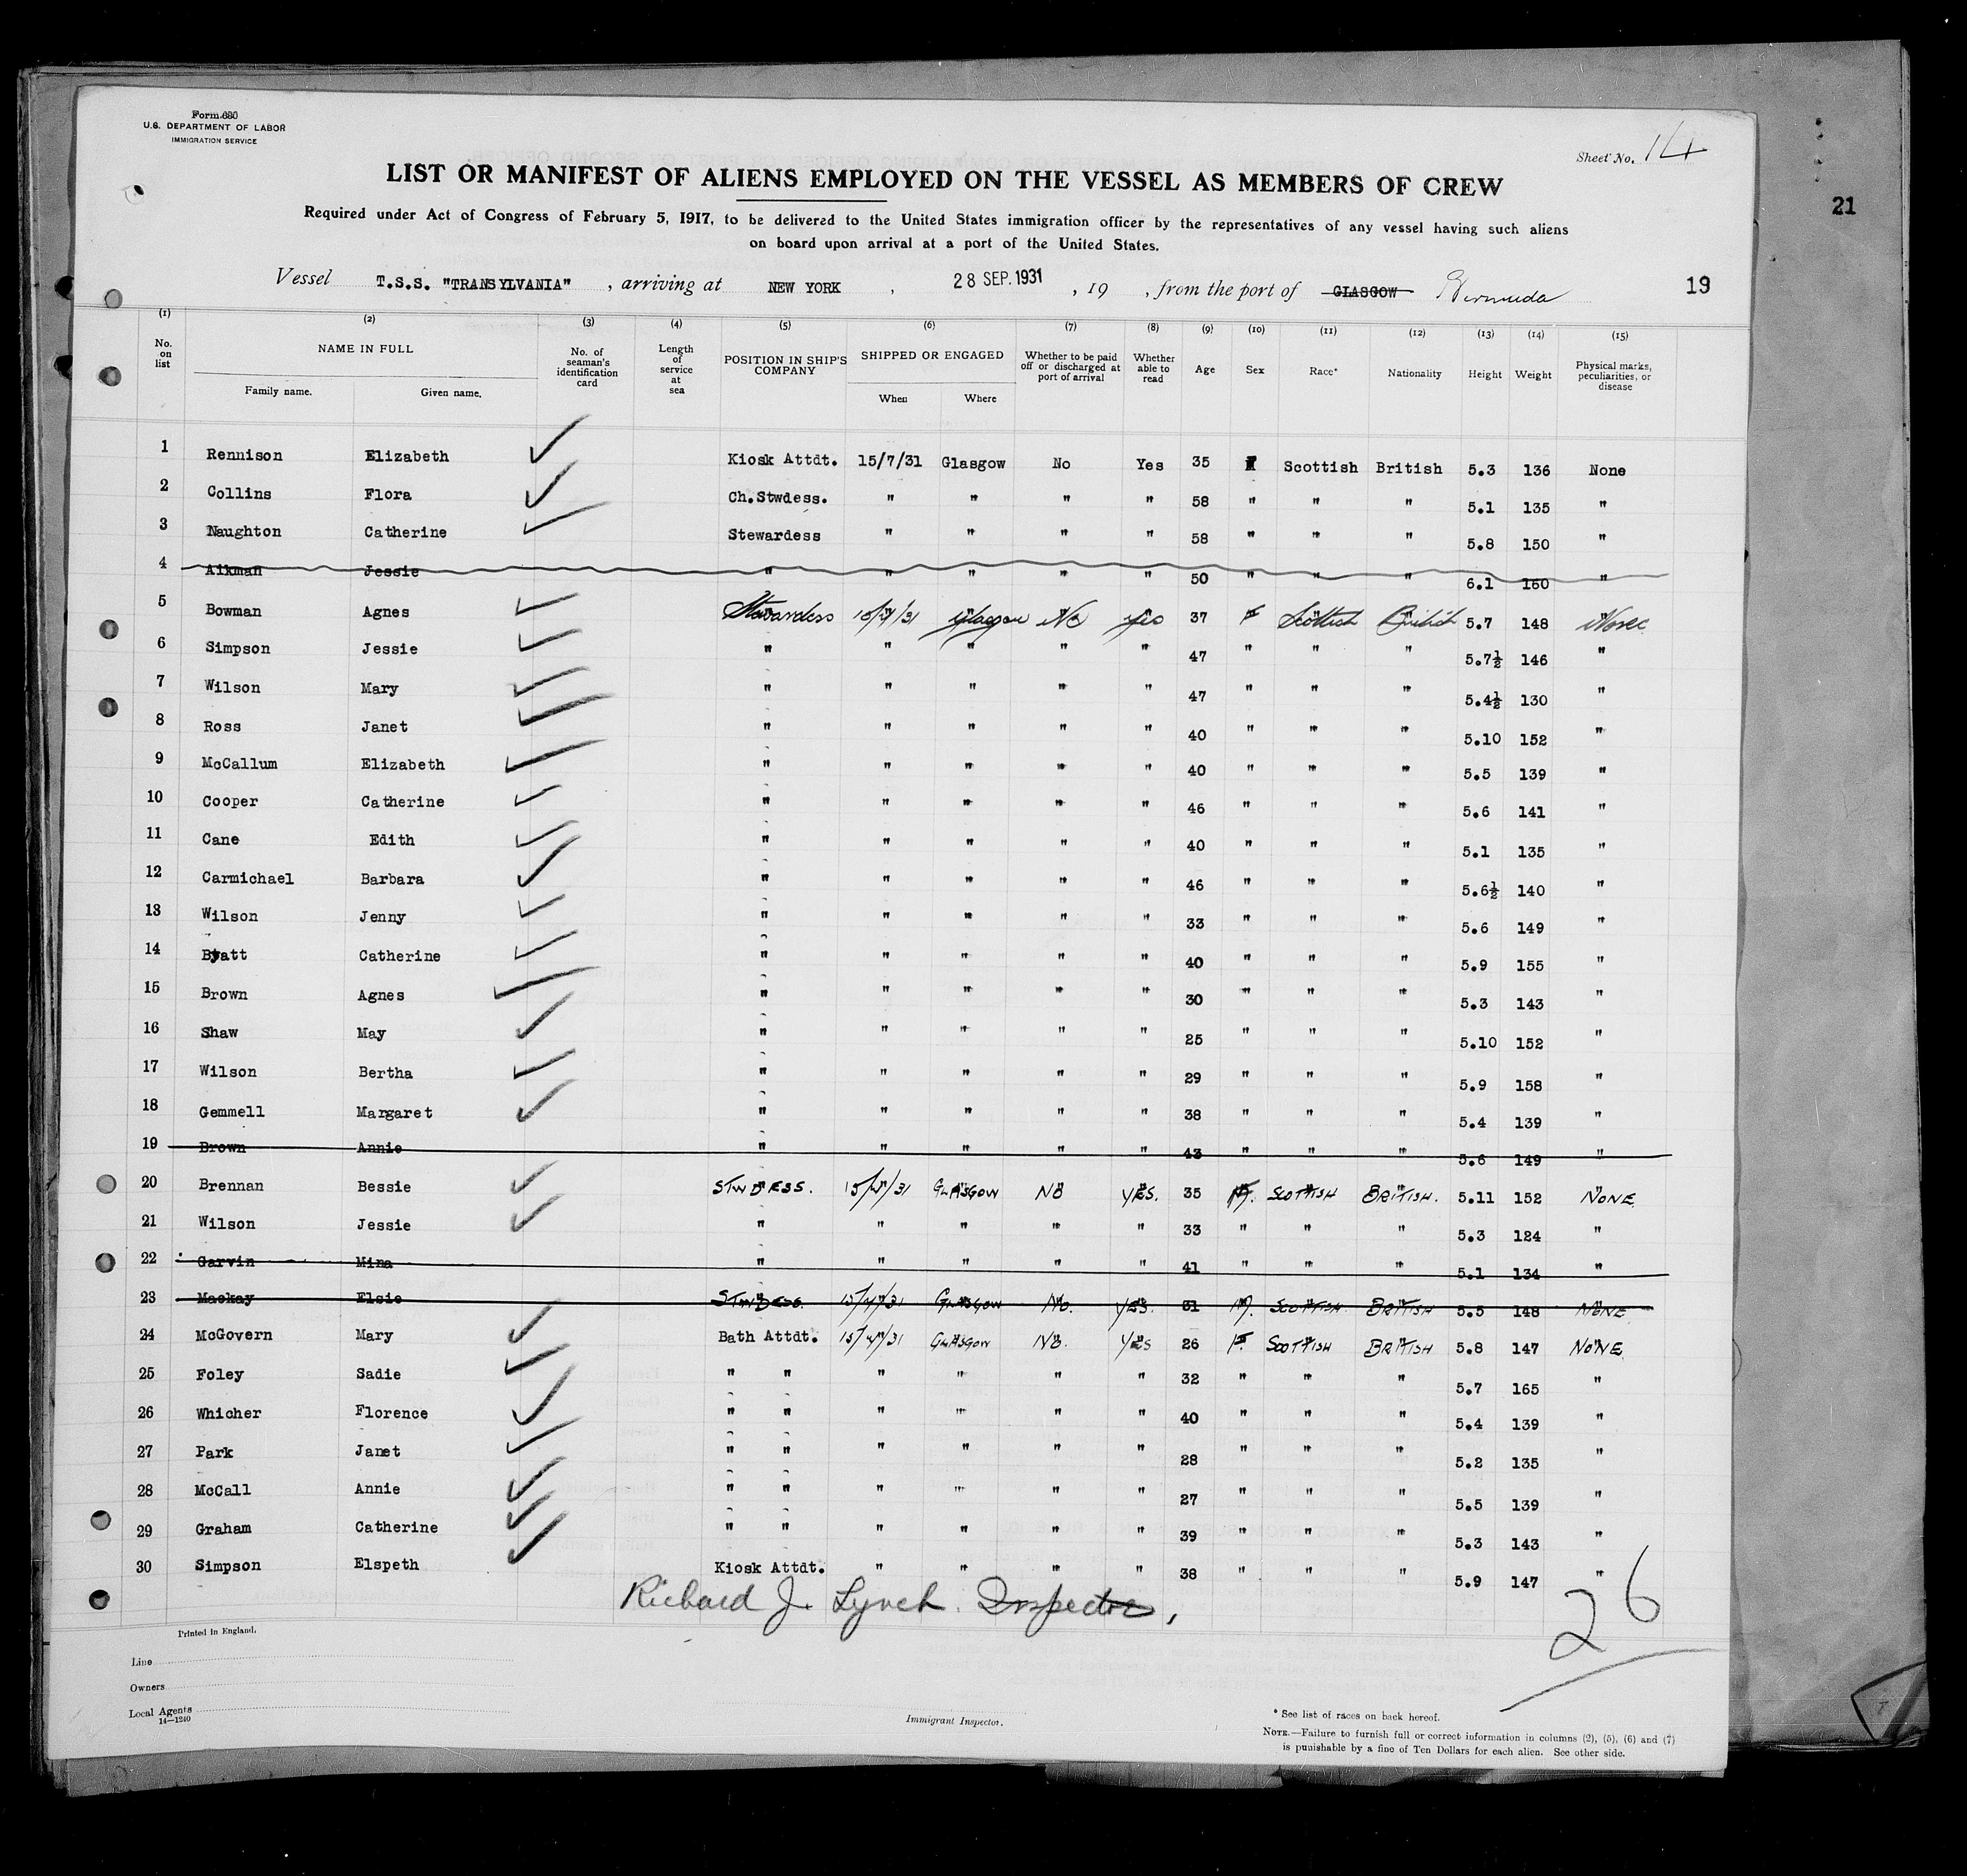 Form 680
U.S. DEPARTMENT OF LABOR
IMMIGRATION SERVICE
Sheet No. 14
LIST OR MANIFEST OF ALIENS EMPLOYED ON THE VESSEL AS MEMBERS OF CREW
21
Required under Act of Congress of February 5, 1917, to be delivered to the United States immigration officer by the representatives of any vessel having such aliens
on board upon arrival at a port of the United States.
Vessel T.S.S. "TRANSYLVANIA", arriving at NEW YORK, 28 SEP. 1931, 19 , from the port of GLASGOW Bermuda 19
(1) (2) (3) (4) (5) (6) (7) (8) (9) (10) (11) (12) (13) (14) (15)
No. on list NAME IN FULL Family name. Given name. No. of seaman's identification card Length of service at sea POSITION IN SHIP'S COMPANY SHIPPED OR ENGAGED When Where Whether to be paid off or discharged at port of arrival Whether able to read Age Sex Race* Nationality Height Weight Physical marks, peculiarities, or disease
1 Rennison Elizabeth Kiosk Attdt. 15/7/31 Glasgow No Yes 35 Scottish British 5.3 136 None
2 Collins Flora Ch.Stwdess. " " " " 58 " " " 5.1 135 "
3 Naughton Catherine Stewardess " " " " 58 " " " 5.8 150 "
4 Aikman Jessie " " " " " 50 " " " 6.1 160 "
5 Bowman Agnes Stewardess Glasgow No Yes 37 F Scottish British 5.7 148 None
6 Simpson Jessie " " " " " 47 " " " 5.7½ 146 "
7 Wilson Mary " " " " " 47 " " " 5.4½ 130 "
8 Ross Janet " " " " " 40 " " " 5.10 152 "
9 McCallum Elizabeth " " " " " 40 " " " 5.5 139 "
10 Cooper Catherine " " " " " 46 " " " 5.6 141 "
11 Cane Edith " " " " " 40 " " " 5.1 135 "
12 Carmichael Barbara " " " " " 46 " " " 5.6½ 140 "
13 Wilson Jenny " " " " " 33 " " " 5.6 149 "
14 Byatt Catherine " " " " " 40 " " " 5.9 155 "
15 Brown Agnes " " " " " 30 " " " 5.3 143 "
16 Shaw May " " " " " 25 " " " 5.10 152 "
17 Wilson Bertha " " " " " 29 " " " 5.9 158 "
18 Gemmell Margaret " " " " " 38 " " " 5.4 139 "
19 Brown Annie " " " " " 43 " " " 5.6 149 "
20 Brennan Bessie STWDESS. GLASGOW NO YES. 35 SCOTTISH BRITISH. 5.11 152 NONE.
21 Wilson Jessie " " " " " 33 " " " 5.3 124 "
22 Garvin Mina " " " " " 41 " " " 5.1 134 "
23 Mackay Elsie STWDESS. GLASGOW NO. YES. 31 SCOTTISH. BRITISH 5.5 148 NONE
24 McGovern Mary Bath Attdt. GLASGOW NO. YES 26 F. SCOTTISH BRITISH 5.8 147 NONE.
25 Foley Sadie " " " " " " 32 " " " 5.7 165 "
26 Whicher Florence " " " " " " 40 " " " 5.4 139 "
27 Park Janet " " " " " " 28 " " " 5.2 135 "
28 McCall Annie " " " " " " 27 " " " 5.5 139 "
29 Graham Catherine " " " " " " 39 " " " 5.3 143 "
30 Simpson Elspeth Kiosk Attdt. " " " " 38 " " " 5.9 147 "
Richard J. Lynch. Inspector,
26
Printed in England.
Line
Owners
Local Agents
14—1240
Immigrant Inspector.
* See list of races on back hereof.
NOTE.—Failure to furnish full or correct information in columns (2), (5), (6) and (7)
is punishable by a fine of Ten Dollars for each alien. See other side.